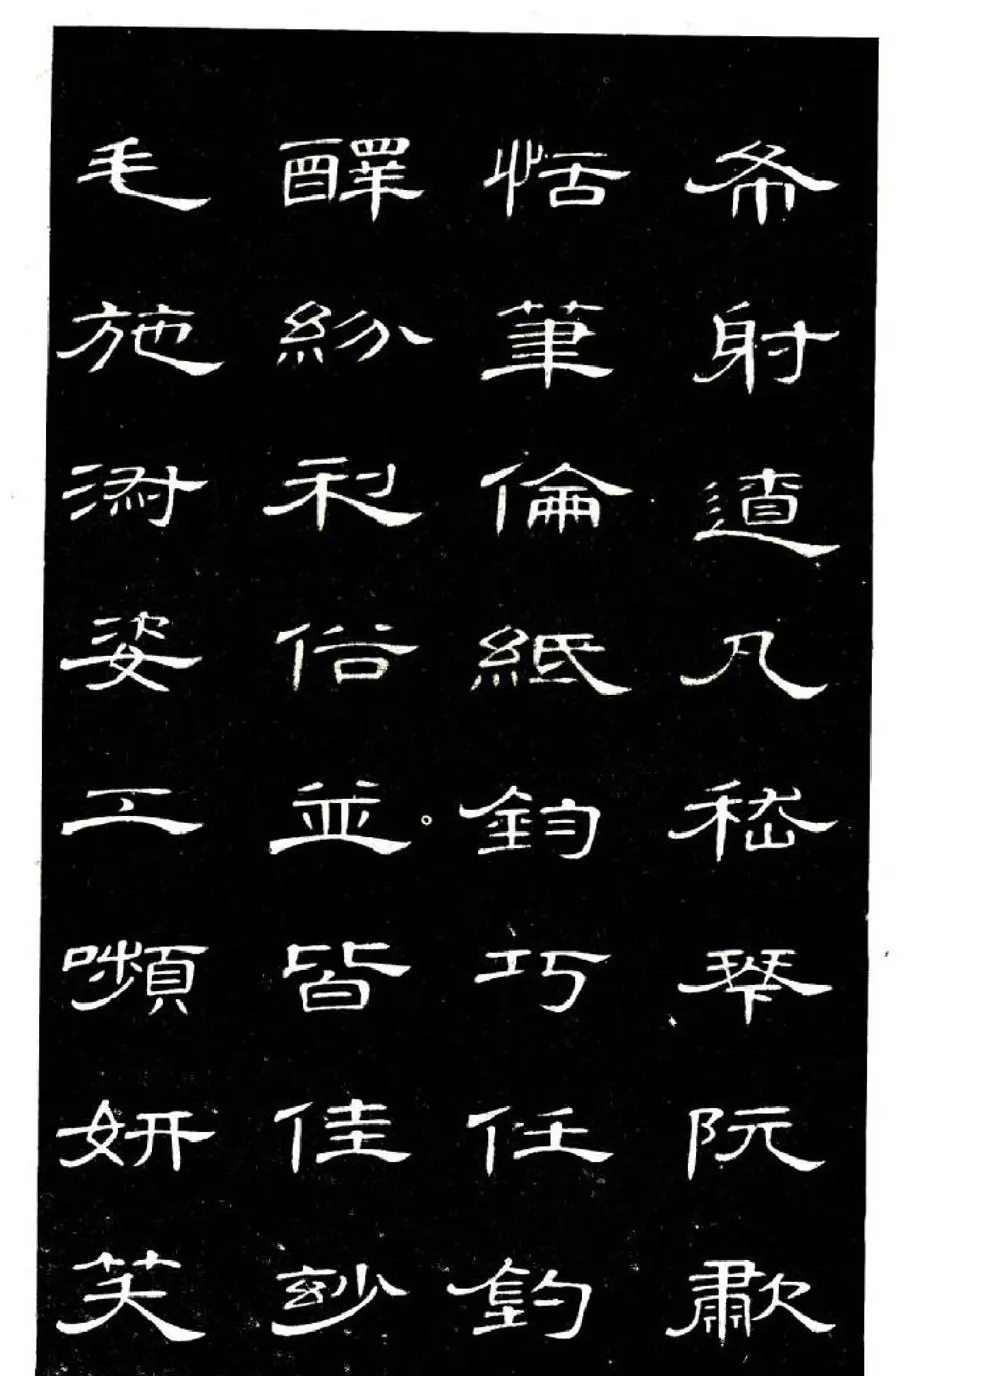 布射遼凡嵇琴阮歗
恬筆倫紙鈞巧任釣
釋紛利俗並皆佳妙
毛施淑姿工嚬妍笑